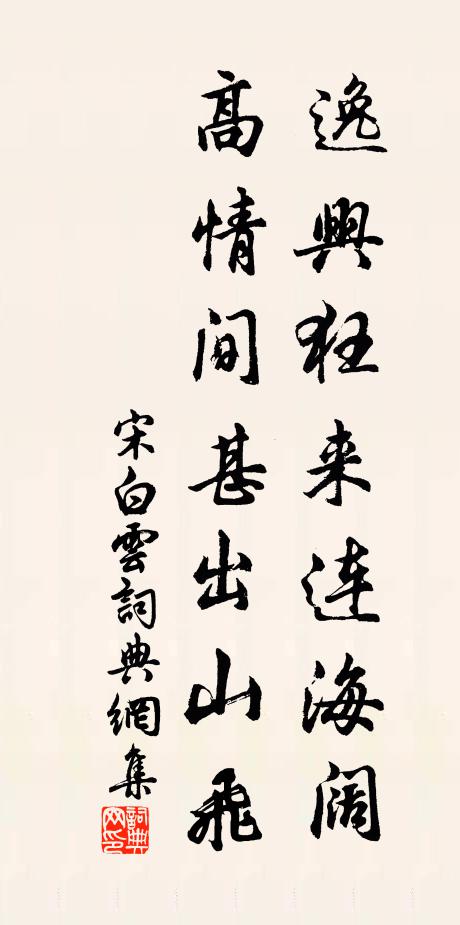 逸興狂来連海阔
高情间甚出山飛
宋白雲詞典網集
詞典网印